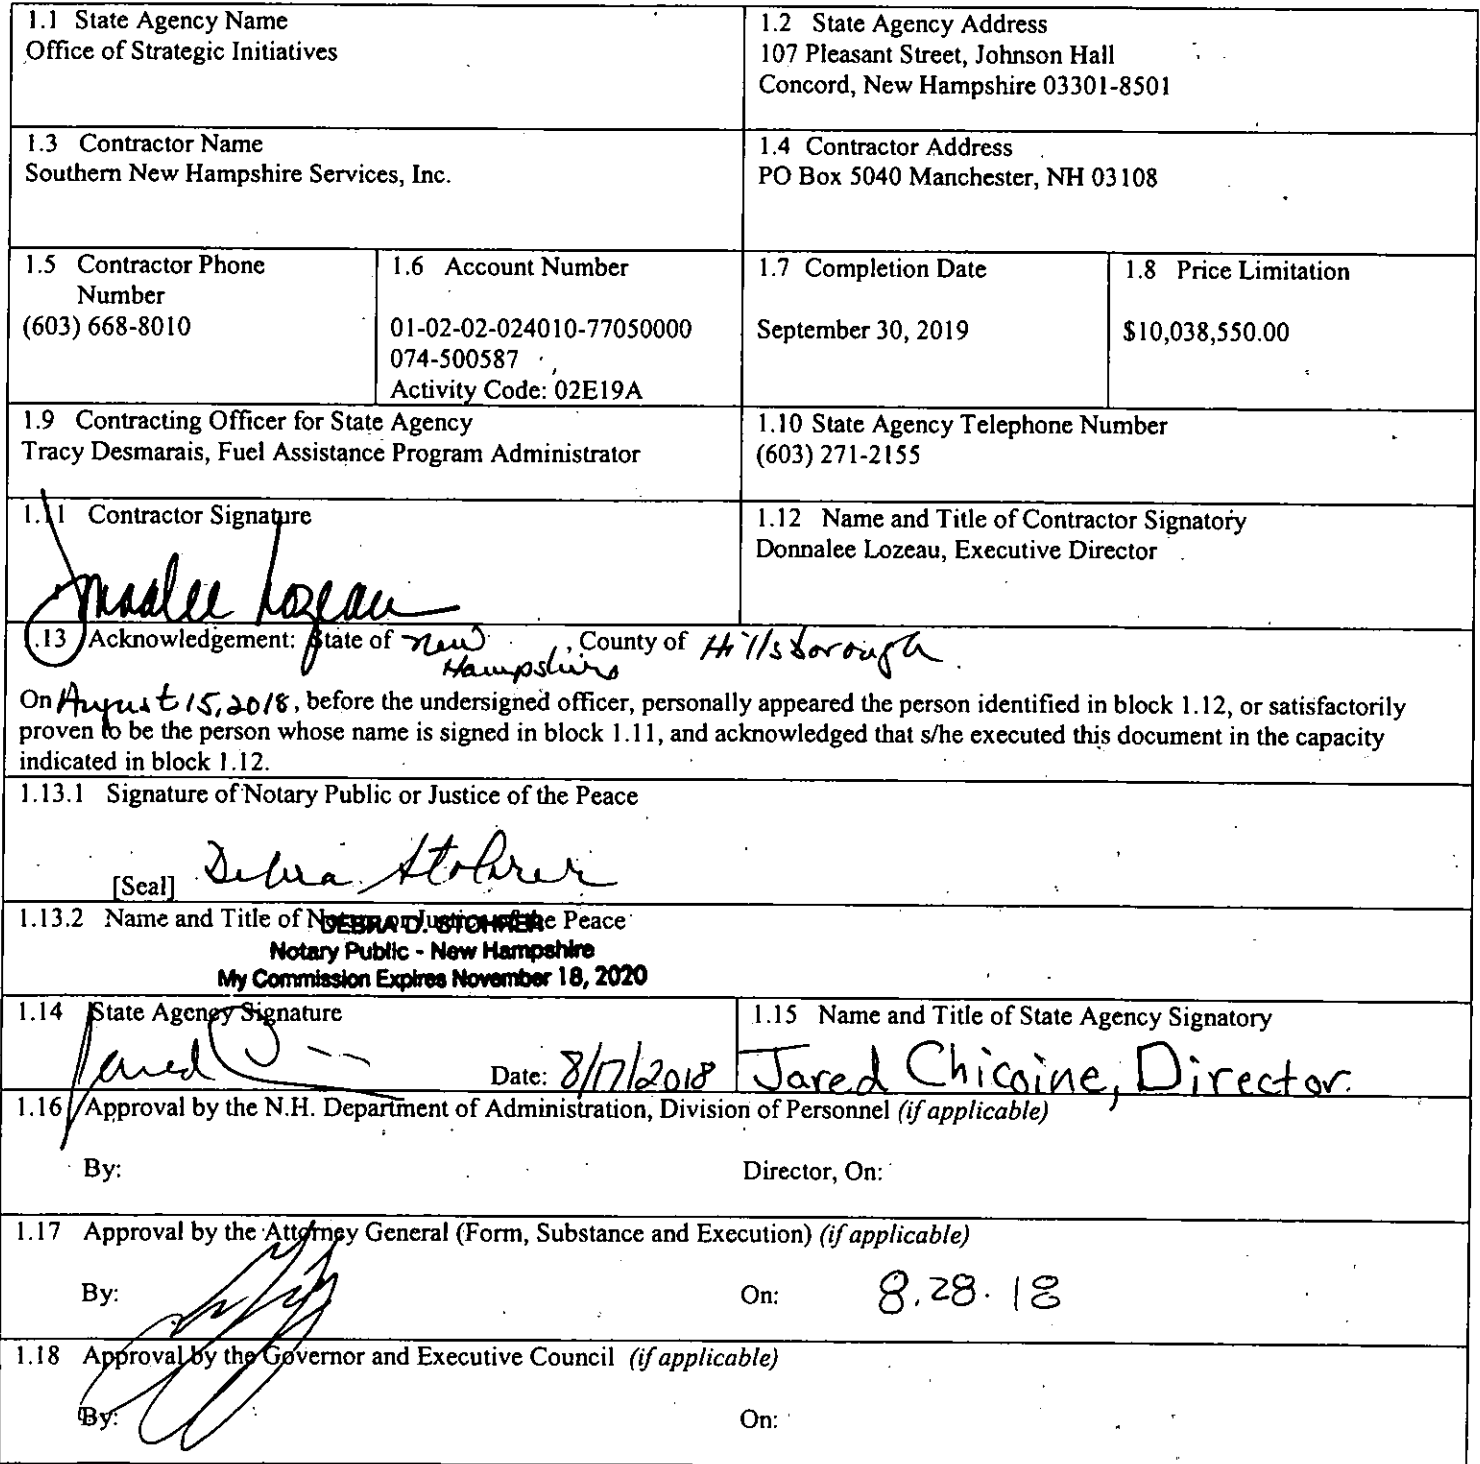 1.1 State Agency Name
Office of Strategic Initiatives
1.2 State Agency Address
107 Pleasant Street, Johnson Hall
Concord, New Hampshire 03301-8501
1.3 Contractor Name
Southern New Hampshire Services, Inc.
1.4 Contractor Address
PO Box 5040 Manchester, NH 03108
1.5 Contractor Phone
Number
(603) 668-8010
1.6 Account Number
01-02-02-024010-77050000
074-500587
Activity Code: 02E19A
1.7 Completion Date
September 30, 2019
1.8 Price Limitation
$10,038,550.00
1.9 Contracting Officer for State Agency
Tracy Desmarais, Fuel Assistance Program Administrator
1.10 State Agency Telephone Number
(603) 271-2155
1.11 Contractor Signature
Donnalee Lozeau
1.12 Name and Title of Contractor Signatory
Donnalee Lozeau, Executive Director
.13 Acknowledgement: State of New Hampshire, County of Hillsborough.
On August 15, 2018, before the undersigned officer, personally appeared the person identified in block 1.12, or satisfactorily
proven to be the person whose name is signed in block 1.11, and acknowledged that s/he executed this document in the capacity
indicated in block 1.12.
1.13.1 Signature of Notary Public or Justice of the Peace
[Seal] Debra Stohrer
1.13.2 Name and Title of Notary or Justice of the Peace
DEBRA D. STOHRER
Notary Public - New Hampshire
My Commission Expires November 18, 2020
1.14 State Agency Signature
Jared
Date: 8/17/2018
1.15 Name and Title of State Agency Signatory
Jared Chicoine, Director.
1.16 Approval by the N.H. Department of Administration, Division of Personnel (if applicable)
By: Director, On:
1.17 Approval by the Attorney General (Form, Substance and Execution) (if applicable)
By: On: 8.28.18
1.18 Approval by the Governor and Executive Council (if applicable)
By: On: